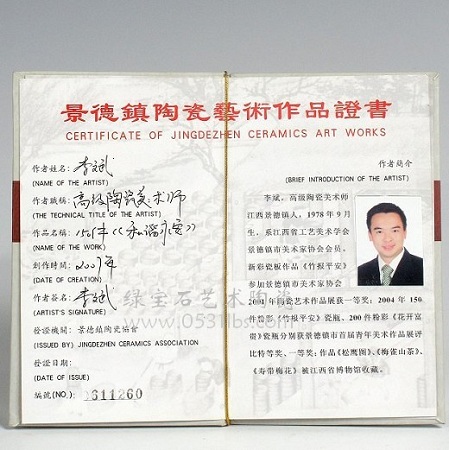 景德鎮陶瓷藝術作品證書
CERTIFICATE OF JINGDEZHEN CERAMICS ART WORKS
作者姓名: 李斌
(NAME OF THE ARTIST)
作者職稱: 高级陶瓷美术师
(THE TECHNICAL TITLE OF THE ARTIST)
作品名稱: 150件
(NAME OF THE WORK)
創作時間: 2007年
(DATE OF CREATION)
作者簽名: 李斌
(ARTIST'S SIGNATURE)
發證機關: 景德鎮陶瓷協會
(ISSUED BY) JINGDEZHEN CERAMICS ASSOCIATION
發證日期:
(DATE OF ISSUE)
編號(NO.): 611260
作者簡介
(BRIEF INTRODUCTION OF THE ARTIST)
李斌，高级陶瓷美术师
江西景德镇人，1978年9月
生，系江西省工艺美术学会
景德镇市美术家协会会员。
新彩瓷板作品《竹报平安》
参加景德镇市美术家协会
2001年陶瓷艺术作品展获一等奖；2004年150
件粉彩《竹报平安》瓷瓶，200件粉彩《花开富
贵》瓷瓶分别获景德镇市首届青年美术作品展评
比特等奖、一等奖；作品《松鹰图》、《梅雀山茶》、
《寿带梅花》被江西省博物馆收藏。
绿宝石艺术陶瓷
www.0531lbs.com